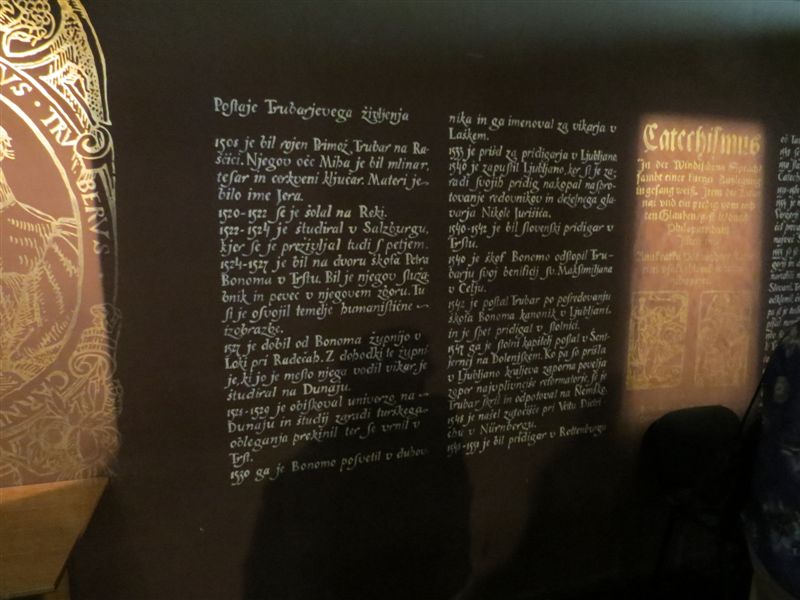 VS · TRVBERVS ·
Postaje Trubarjevega življenja
1508 je bil rojen Primož Trubar na Ra-
ščici. Njegov oče Miha je bil mlinar,
tesar in cerkveni ključar. Materi je
bilo ime Jera.
1520-1522 se je šolal na Reki.
1522-1524 je študiral v Salzburgu,
kjer se je preživljal tudi s petjem.
1524-1527 je bil na dvoru škofa Petra
Bonoma v Trstu. Bil je njegov služa-
bnik in pevec v njegovem zboru. Tu
si je osvojil temelje humanistične
izobrazbe.
1527 je dobil od Bonoma župnijo v
Loki pri Radečah. Z dohodki te župni-
je, ki jo je mesto njega vodil vikar, je
študiral na Dunaju.
1528-1529 je obiskoval univerzo na
Dunaju in študij zaradi turškega
obleganja prekinil ter se vrnil v
Trst.
1530 ga je Bonomo posvetil v duhov-
nika in ga imenoval za vikarja v
Laškem.
1535 je prišel za pridigarja v Ljubljano.
1540 je zapustil Ljubljano, ker si je za-
radi svojih pridig nakopal naspro-
tovanje redovnikov in deželnega gla-
varja Nikole Jurišića.
1540-1542 je bil slovenski pridigar v
Trstu.
1540 je škof Bonomo odstopil Tru-
barju svoj beneficij sv. Maksimiljana
v Celju.
1542 je postal Trubar po posredovanju
škofa Bonoma kanonik v Ljubljani
in je spet pridigal v stolnici.
1547 ga je stolni kapitelj poslal v Šent-
jernej na Dolenjskem. Ko pa so prišla
v Ljubljano kraljeva zaporna povelja
zoper najvplivnejše reformatorje, se je
Trubar skril in odpotoval na Nemško.
1548 je našel zatočišče pri Vitu Dietri-
chu v Nürnbergu.
je bil pridigar v Rothenburgu
Catechismus
In der Windischen Sprach
sambt einer kurtzen Auslegung
in gesang weiß. Item die Litanai
und ein predig vom rechten
Glauben